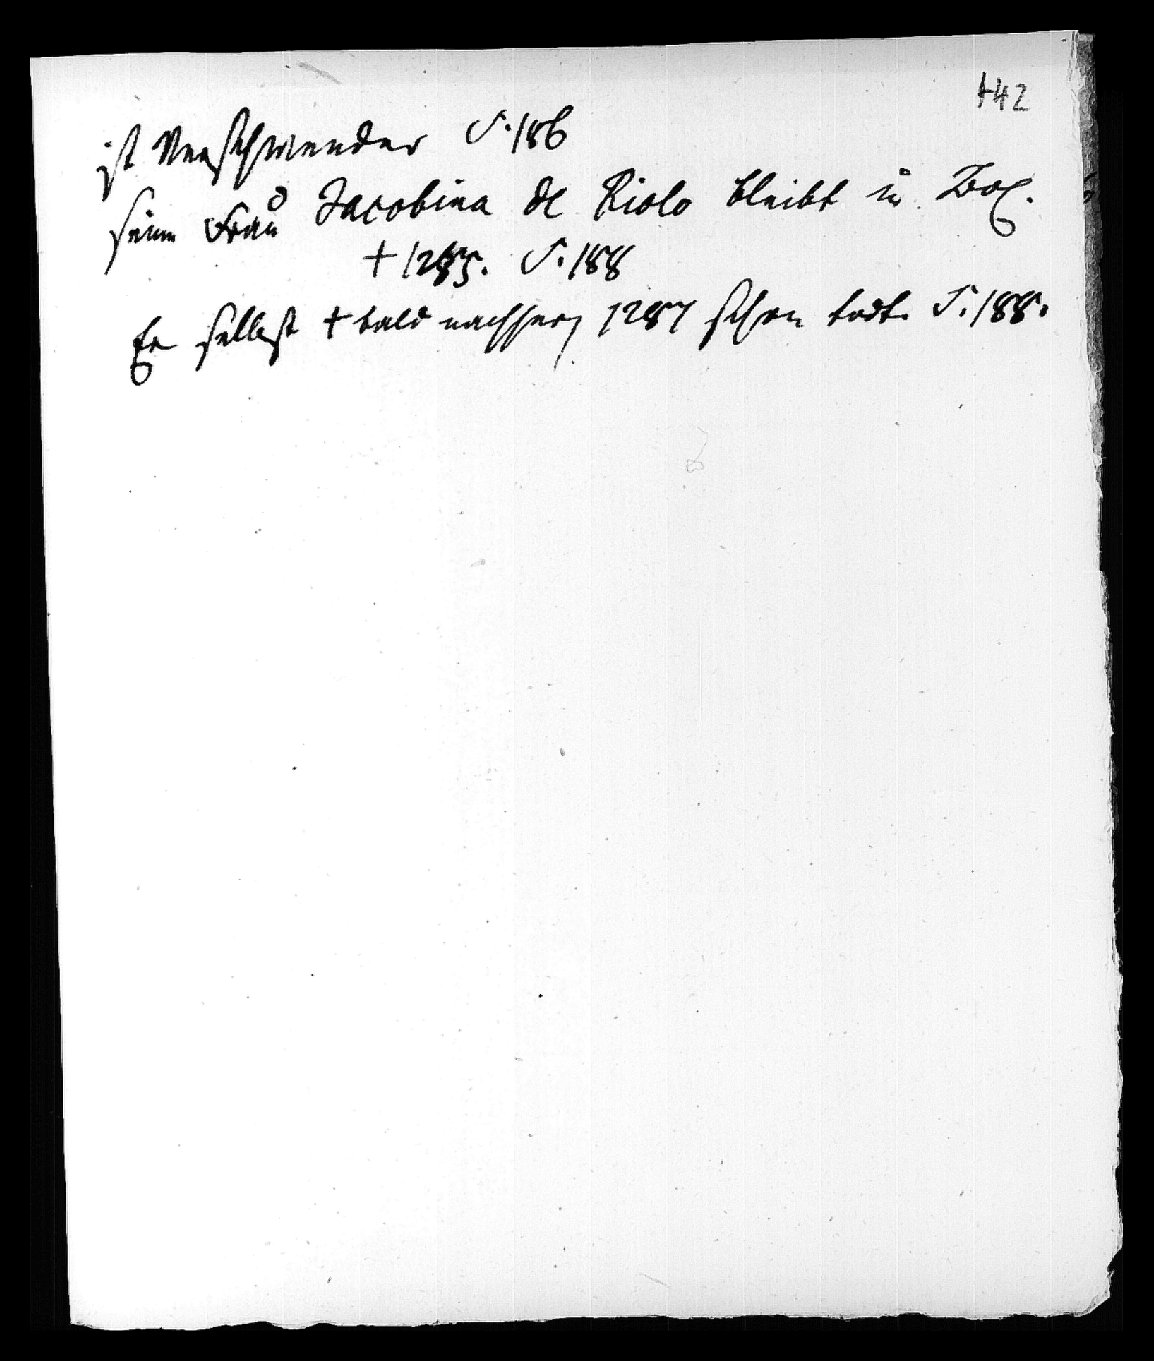 142
ist Verschwender S. 186
seine Frau Jacobina de Riolo bleibt in Bol.
† 1285. S. 188
Er selbst † bald nachher, 1287 schon todt. S. 188.